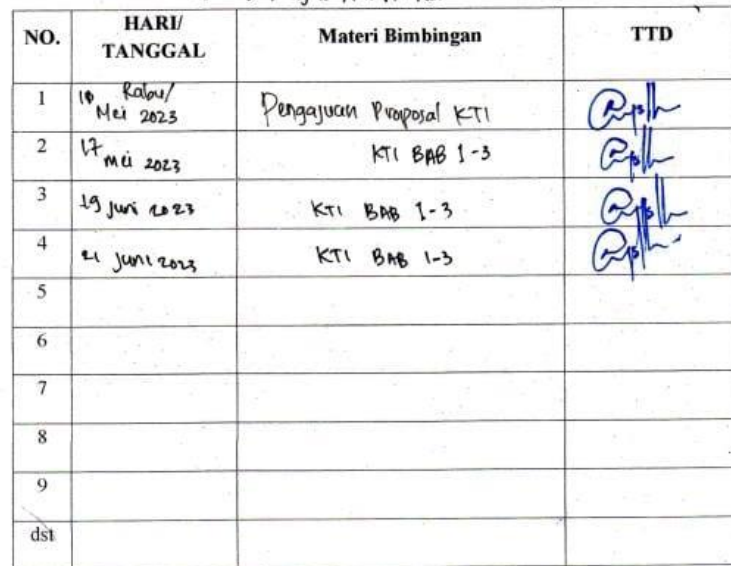 NO. HARI/ TANGGAL Materi Bimbingan TTD
1 Rabu/ 10 Mei 2023 Pengajuan Proposal KTI
2 17 Mei 2023 KTI BAB 1-3
3 19 Juni 2023 KTI BAB 1-3
4 21 Juni 2023 KTI BAB 1-3
5
6
7
8
9
dst